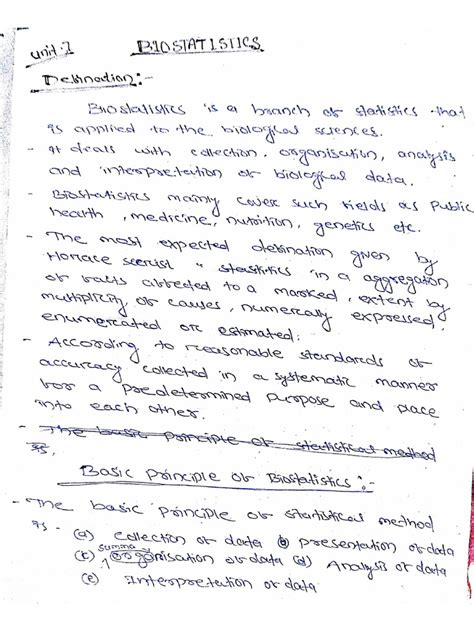 unit:1 BIOSTATISTICS
Defination:-
Biostatistics is a branch of statistics that
is applied to the biological sciences.
- It deals with collection, organisation, analysis
and interpretation of biological data.
- Biostatistics mainly cover such fields as public
health, medicine, nutrition, genetics etc.
- The most expected defination given by
Horace secrist " statistics in a aggregation
of facts affected to a marked, extent by
multiplicity of causes, numerically expressed,
enumercated or estimated.
- According to reasonable standards of
accuracy collected in a systematic manner
for a predetermined purpose and place
into each other.
- The basic principle of statistical method
is.
Basic principle of Biostatistics:-
- The basic principle of statistical method
is -
(a) collection of data (b) presentation of data
(c) summarisation of data (d) Analysis of data
(e) Interpretation of data